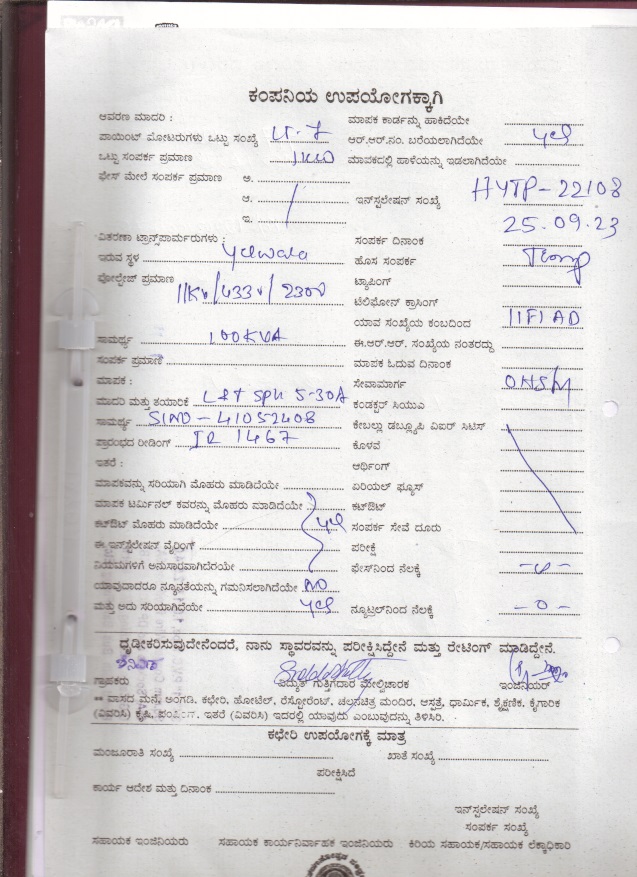 ಕಂಪನಿಯ ಉಪಯೋಗಕ್ಕಾಗಿ
ಆವರಣ ಮಾದರಿ : ಮಾಪಕ ಕಾರ್ಡನ್ನು ಹಾಕಿದೆಯೇ
ಪಾಯಿಂಟ್ ಮೋಟರುಗಳು ಒಟ್ಟು ಸಂಖ್ಯೆ LT-7 ಆರ್.ಆರ್.ನಂ. ಬರೆಯಲಾಗಿದೆಯೇ yes
ಒಟ್ಟು ಸಂಪರ್ಕ ಪ್ರಮಾಣ 1KW ಮಾಪಕದಲ್ಲಿ ಹಾಳೆಯನ್ನು ಇಡಲಾಗಿದೆಯೇ
ಫೇಸ್ ಮೇಲೆ ಸಂಪರ್ಕ ಪ್ರಮಾಣ ಅ.
ಆ. ಇನ್‌ಸ್ಟಲೇಷನ್ ಸಂಖ್ಯೆ HYTP-22108
ಇ. 25.09.23
ವಿತರಣಾ ಟ್ರಾನ್ಸ್‌ಪಾರ್ಮರುಗಳು : ಸಂಪರ್ಕ ದಿನಾಂಕ
ಇರುವ ಸ್ಥಳ Yelwala ಹೊಸ ಸಂಪರ್ಕ Temp
ವೋಲ್ಟೇಜ್ ಪ್ರಮಾಣ 11Kv/433v/230v ಟ್ಯಾಪಿಂಗ್
ಟೆಲಿಫೋನ್ ಕ್ರಾಸಿಂಗ್
ಯಾವ ಸಂಖ್ಯೆಯ ಕಂಬದಿಂದ 11F1 AD
ಸಾಮರ್ಥ್ಯ 100KVA ಈ.ಆರ್.ಆರ್. ಸಂಖ್ಯೆಯ ನಂತರದ್ದು
ಸಂಪರ್ಕ ಪ್ರಮಾಣ ಮಾಪಕ ಓದುವ ದಿನಾಂಕ
ಮಾಪಕ : ಸೇವಾಮಾರ್ಗ OHSM
ಮಾದರಿ ಮತ್ತು ತಯಾರಿಕೆ L&T SPH 5-30A ಕಂಡಕ್ಟರ್ ಸಿಯುಎ
ಸಾಮರ್ಥ್ಯ SlNO-41052408 ಕೇಬಲ್ಲು ಡಬ್ಲ್ಯೂಪಿ ಎಐರ್ ಸಿಟಿಸ್
ಪ್ರಾರಂಭದ ರೀಡಿಂಗ್ IR 1467 ಕೊಳವೆ
ಇತರೆ : ಆರ್ಥಿಂಗ್
ಮಾಪಕವನ್ನು ಸರಿಯಾಗಿ ಮೊಹರು ಮಾಡಿದೆಯೇ ಏರಿಯಲ್ ಫ್ಯೂಸ್
ಮಾಪಕ ಟರ್ಮಿನಲ್ ಕವರನ್ನು ಮೊಹರು ಮಾಡಿದೆಯೇ ಕಟ್‌ಔಟ್
ಕಟ್‌ಔಟ್ ಮೊಹರು ಮಾಡಿದೆಯೇ yes ಸಂಪರ್ಕ ಸೇವೆ ದೂರು
ಈ ಇನ್‌ಸ್ಟಲೇಷನ್ ವೈರಿಂಗ್ ಪರೀಕ್ಷೆ
ನಿಯಮಗಳಿಗೆ ಅನುಸಾರವಾಗಿದೆರೆಯೇ ಫೇಸ್‌ನಿಂದ ನೆಲಕ್ಕೆ -0-
ಯಾವುದಾದರೂ ನ್ಯೂನತೆಯನ್ನು ಗಮನಿಸಲಾಗಿದೆಯೇ NO
ಮತ್ತು ಅದು ಸರಿಯಾಗಿದೆಯೇ yes ನ್ಯೂಟ್ರಲ್‌ನಿಂದ ನೆಲಕ್ಕೆ -0-
ಧೃಡೀಕರಿಸುವುದೇನೆಂದರೆ, ನಾನು ಸ್ಥಾವರವನ್ನು ಪರೀಕ್ಷಿಸಿದ್ದೇನೆ ಮತ್ತು ರೇಟಿಂಗ್ ಮಾಡಿದ್ದೇನೆ.
ಗ್ರಾಹಕರು ವಿದ್ಯುತ್ ಗುತ್ತಿಗೆದಾರ ಮೇಲ್ವಿಚಾರಕ ಇಂಜಿನಿಯರ್
** ವಾಸದ ಮನೆ, ಅಂಗಡಿ, ಕಛೇರಿ, ಹೋಟೆಲ್, ರೆಸ್ಟೋರೆಂಟ್, ಚಲನಚಿತ್ರ ಮಂದಿರ, ಆಸ್ಪತ್ರೆ, ಧಾರ್ಮಿಕ, ಶೈಕ್ಷಣಿಕ, ಕೈಗಾರಿಕ
(ವಿವರಿಸಿ) ಕೃಷಿ, ಪಂಪಿಂಗ್, ಇತರೆ (ವಿವರಿಸಿ) ಇದರಲ್ಲಿ ಯಾವುದು ಎಂಬುವುದನ್ನು ತಿಳಿಸಿರಿ.
ಕಛೇರಿ ಉಪಯೋಗಕ್ಕೆ ಮಾತ್ರ
ಮಂಜೂರಾತಿ ಸಂಖ್ಯೆ ಖಾತೆ ಸಂಖ್ಯೆ
ಪರೀಕ್ಷಿಸಿದೆ
ಕಾರ್ಯ ಆದೇಶ ಮತ್ತು ದಿನಾಂಕ
ಇನ್‌ಸ್ಟಲೇಷನ್ ಸಂಖ್ಯೆ
ಸಂಪರ್ಕ ಸಂಖ್ಯೆ
ಸಹಾಯಕ ಇಂಜಿನಿಯರು ಸಹಾಯಕ ಕಾರ್ಯನಿರ್ವಾಹಕ ಇಂಜಿನಿಯರು ಕಿರಿಯ ಸಹಾಯಕ/ಸಹಾಯಕ ಲೆಕ್ಕಾಧಿಕಾರಿ